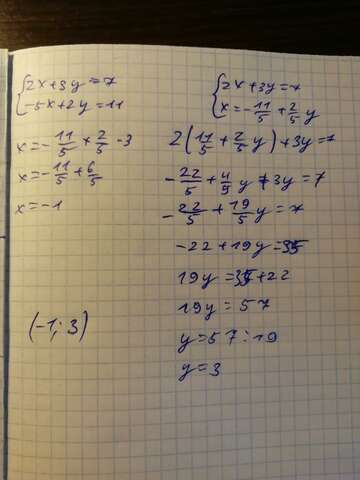 {2x+3y=7
{-5x+2y=11
x=-11/5+2/5·3
x=-11/5+6/5
x=-1
(-1; 3)
{2x+3y=7
{x=-11/5+2/5y
2(11/5+2/5y)+3y=7
-22/5+4/5y+3y=7
-22/5+19/5y=7
-22+19y=35
19y=35+22
19y=57
y=57:19
y=3